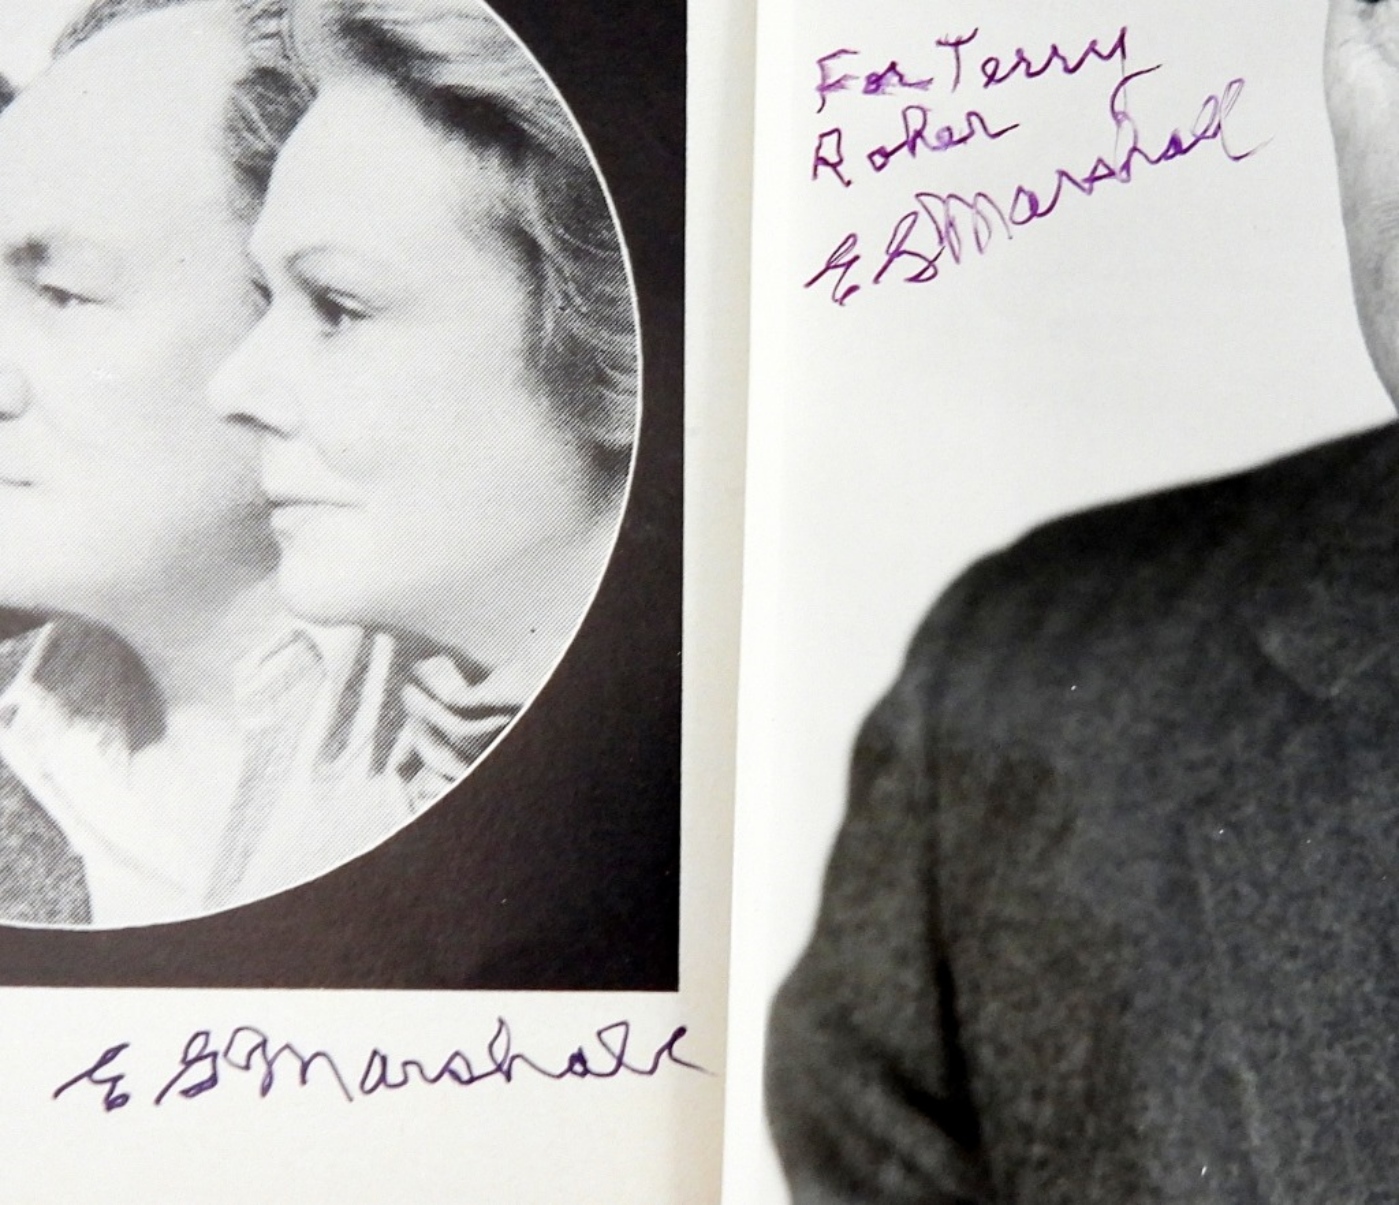 For Terry
Roker
E G Marshall
E G Marshall